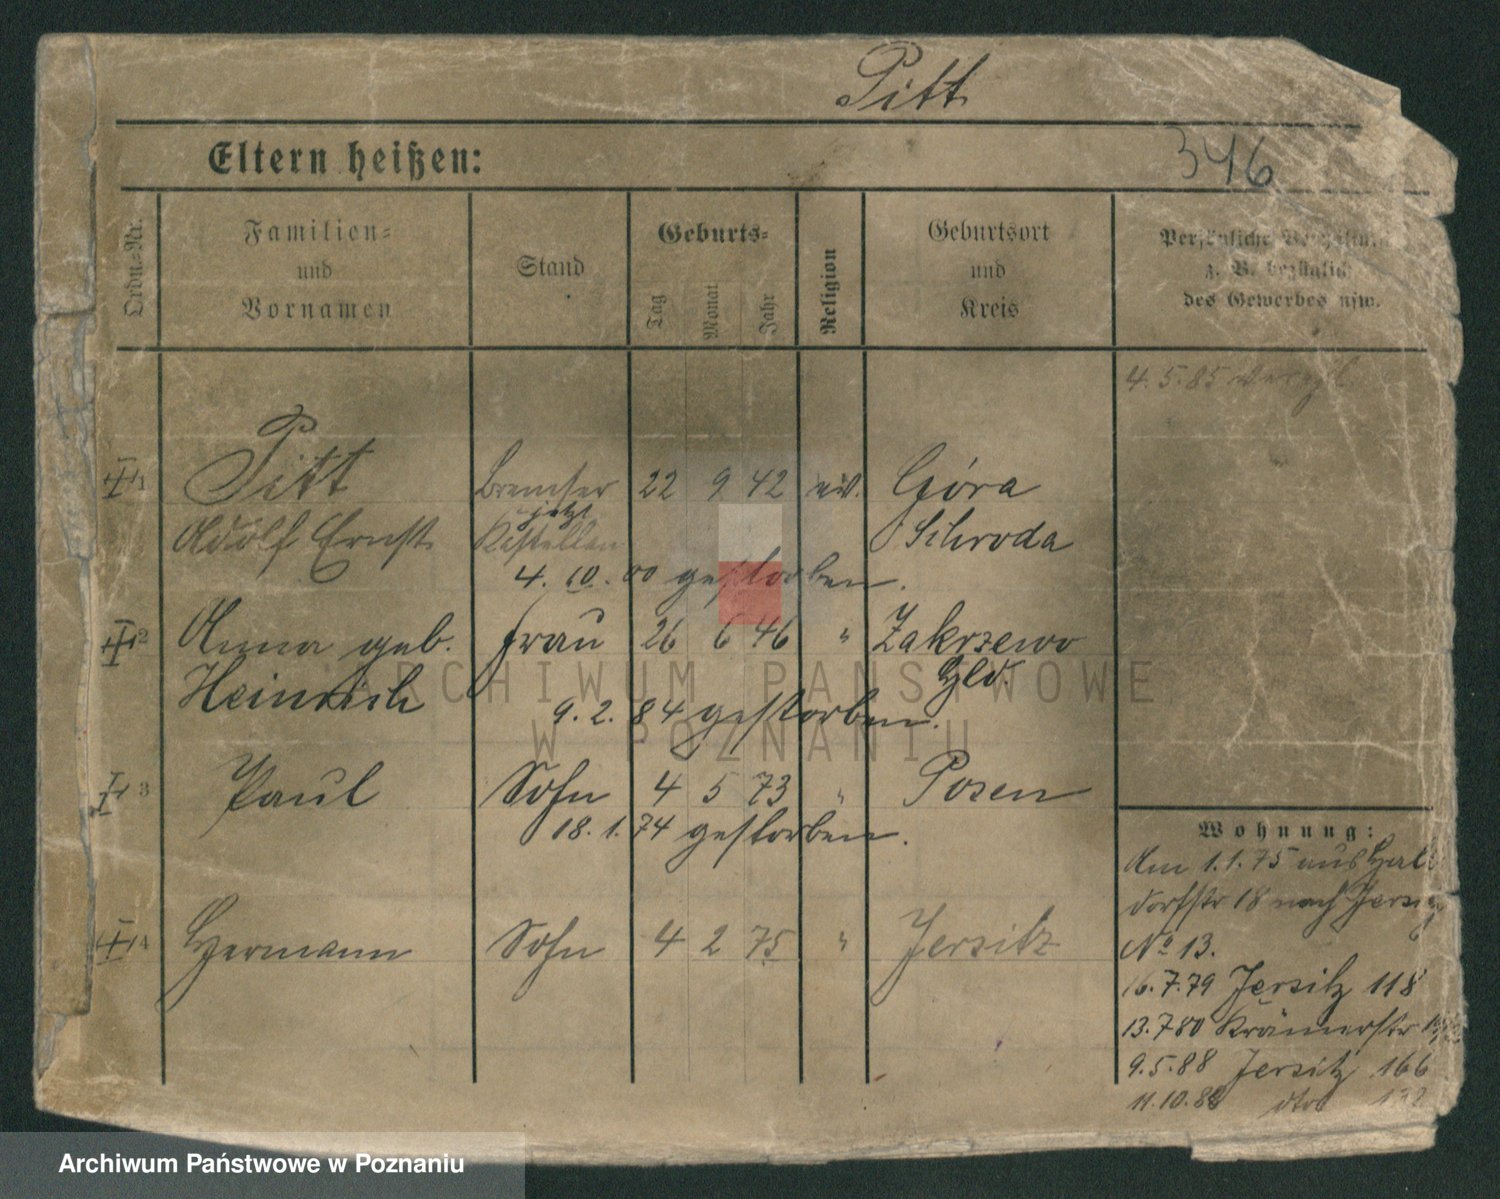 Pitt
346
Eltern heißen:
Ordn.-Nr.
Familien-
und
Vornamen
Stand
Geburts-
Tag
Monat
Jahr
Religion
Geburtsort
und
Kreis
Persönliche
z. B. bezüglich
des Gewerbes usw.
4.5.85
1 Pitt Bremser 22 9 42 Góra
jetzt
Adolf Ernst Schroda
4.10.00 gestorben.
2 Anna geb. Frau 26 6 46 " Zakrzewo
Heinrich
9.2.84 gestorben.
3 Paul Sohn 4 5 73 " Posen
18.1.74 gestorben.
4 Hermann Sohn 4 2 75 " Jersitz
Wohnung:
Am 1.1.75 aus
dorfstr 18 nach
No 13.
16.7.79 Jersitz 118
13.7.80 Krämerstr
9.5.88 Jersitz 166
11.10.88 dto
ARCHIWUM PAŃSTWOWE
W POZNANIU
Archiwum Państwowe w Poznaniu